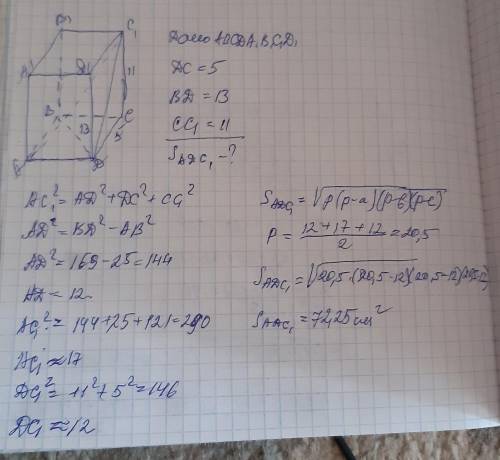 Дано ABCDA₁B₁C₁D₁
DC = 5
BD = 13
CC₁ = 11
S_ADC₁ - ?
A₁ D₁ C₁
11
B C
13 5
D
AC₁² = AD² + DC² + CC₁²
AD² = BD² - AB²
AD² = 169 - 25 = 144
AD = 12
AC₁² = 144 + 25 + 121 = 290
AC₁ ≈ 17
DC₁² = 11² + 5² = 146
DC₁ ≈ 12
S_ADC₁ = √p(p-a)(p-b)(p-c)
P = (12 + 17 + 12)/2 = 20,5
S_ADC₁ = √20,5·(20,5-12)(20,5-12)
S_ADC₁ = 72,25 см²